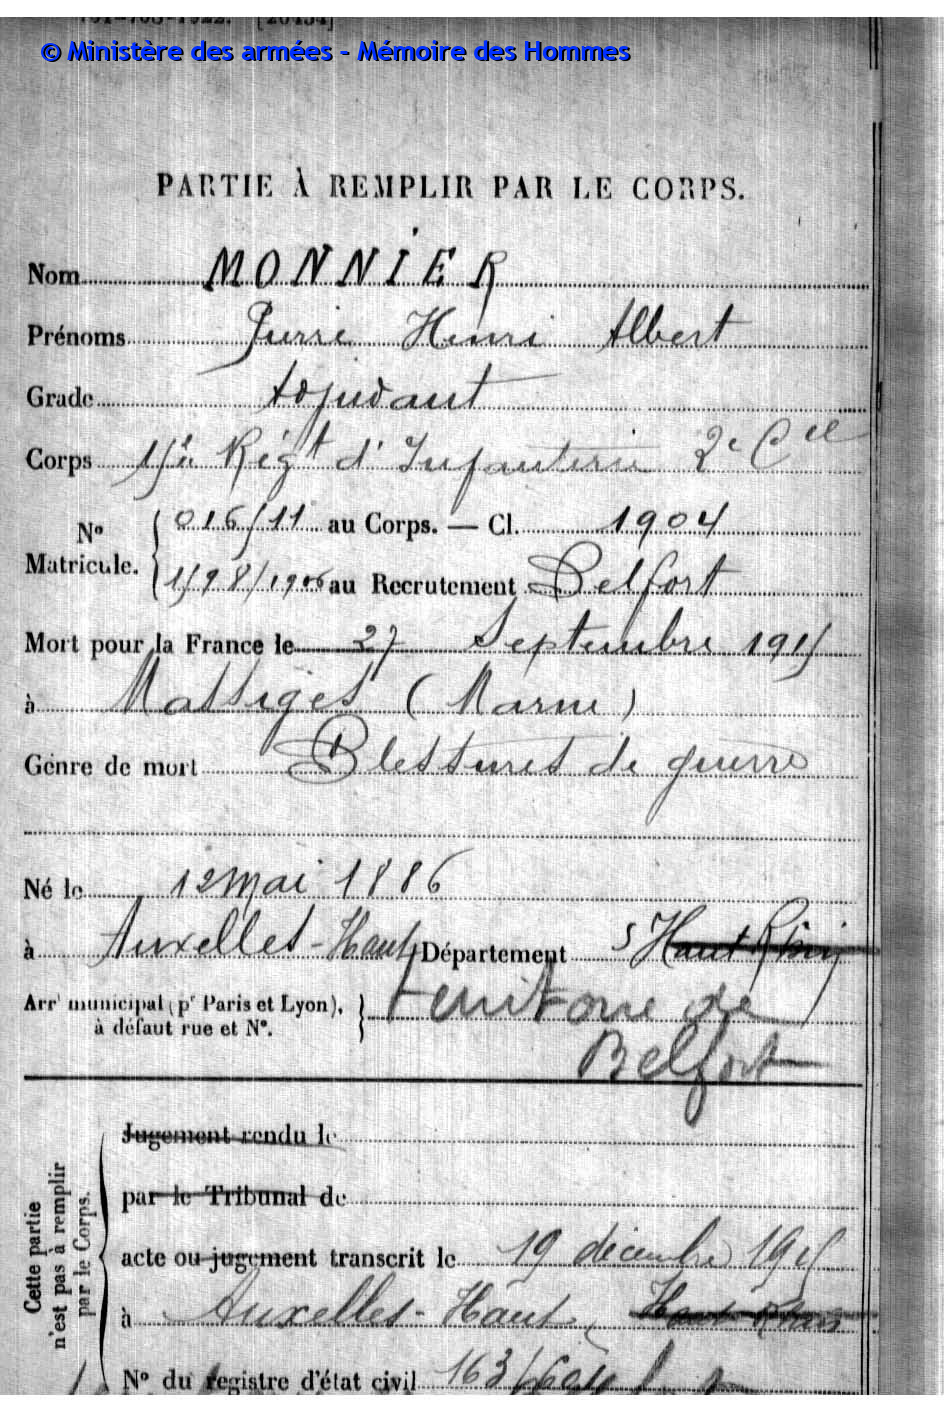 © Ministère des armées - Mémoire des Hommes
PARTIE À REMPLIR PAR LE CORPS.
Nom MONNIER
Prénoms Pierre Henri Albert
Grade Adjudant
Corps 15è Régt d'Infanterie 2e Cie
No Matricule. 016/11 au Corps. — Cl. 1904
1598/1906 au Recrutement Belfort
Mort pour la France le 27 Septembre 1915
à Massiges (Marne)
Genre de mort Blessures de guerre
Né le 12 mai 1886
à Auxelles-Haut Département Haut Rhin
Arrt municipal (pr Paris et Lyon), à défaut rue et No. territoire de
Belfort
Cette partie n'est pas à remplir par le Corps.
Jugement rendu le
par le Tribunal de
acte ou jugement transcrit le 19 décembre 1915
à Auxelles-Haut, Haut Rhin
No du registre d'état civil 163/